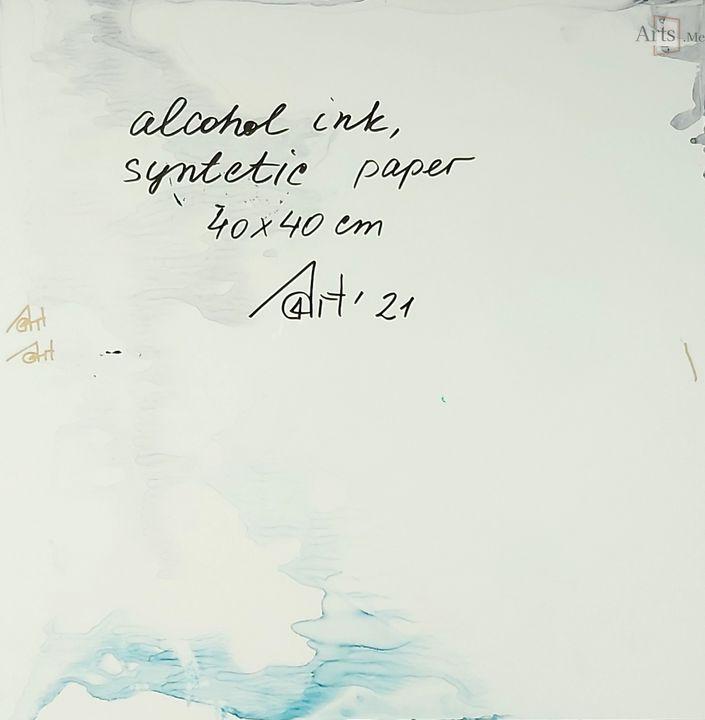 Arts.Me
alcohol ink,
syntetic paper
40x40 cm
Art' 21
Art
Art